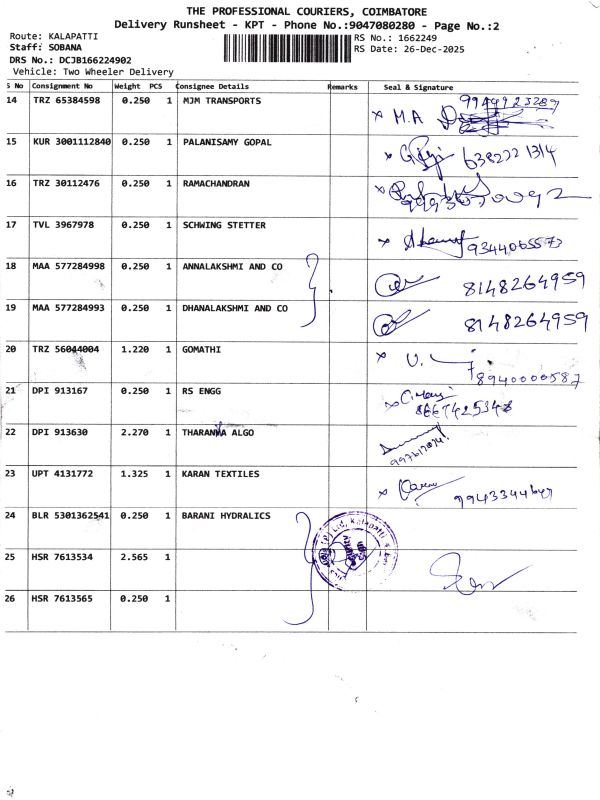 THE PROFESSIONAL COURIERS, COIMBATORE
Delivery Runsheet - KPT - Phone No.:9047080280 - Page No.:2
Route: KALAPATTI RS No.: 1662249
Staff: SOBANA RS Date: 26-Dec-2025
DRS No.: DCJB166224902
Vehicle: Two Wheeler Delivery
S No Consignment No Weight PCS Consignee Details Remarks Seal & Signature
14 TRZ 65384598 0.250 1 MJM TRANSPORTS x M.A
15 KUR 3001112840 0.250 1 PALANISAMY GOPAL x
16 TRZ 30112476 0.250 1 RAMACHANDRAN x
17 TVL 3967978 0.250 1 SCHWING STETTER x 9344065573
18 MAA 577284998 0.250 1 ANNALAKSHMI AND CO 8148264959
19 MAA 577284993 0.250 1 DHANALAKSHMI AND CO 8148264959
20 TRZ 56044004 1.220 1 GOMATHI x 8940000587
21 DPI 913167 0.250 1 RS ENGG x
22 DPI 913630 2.270 1 THARANYA ALGO
23 UPT 4131772 1.325 1 KARAN TEXTILES x
24 BLR 5301362541 0.250 1 BARANI HYDRALICS
25 HSR 7613534 2.565 1
26 HSR 7613565 0.250 1